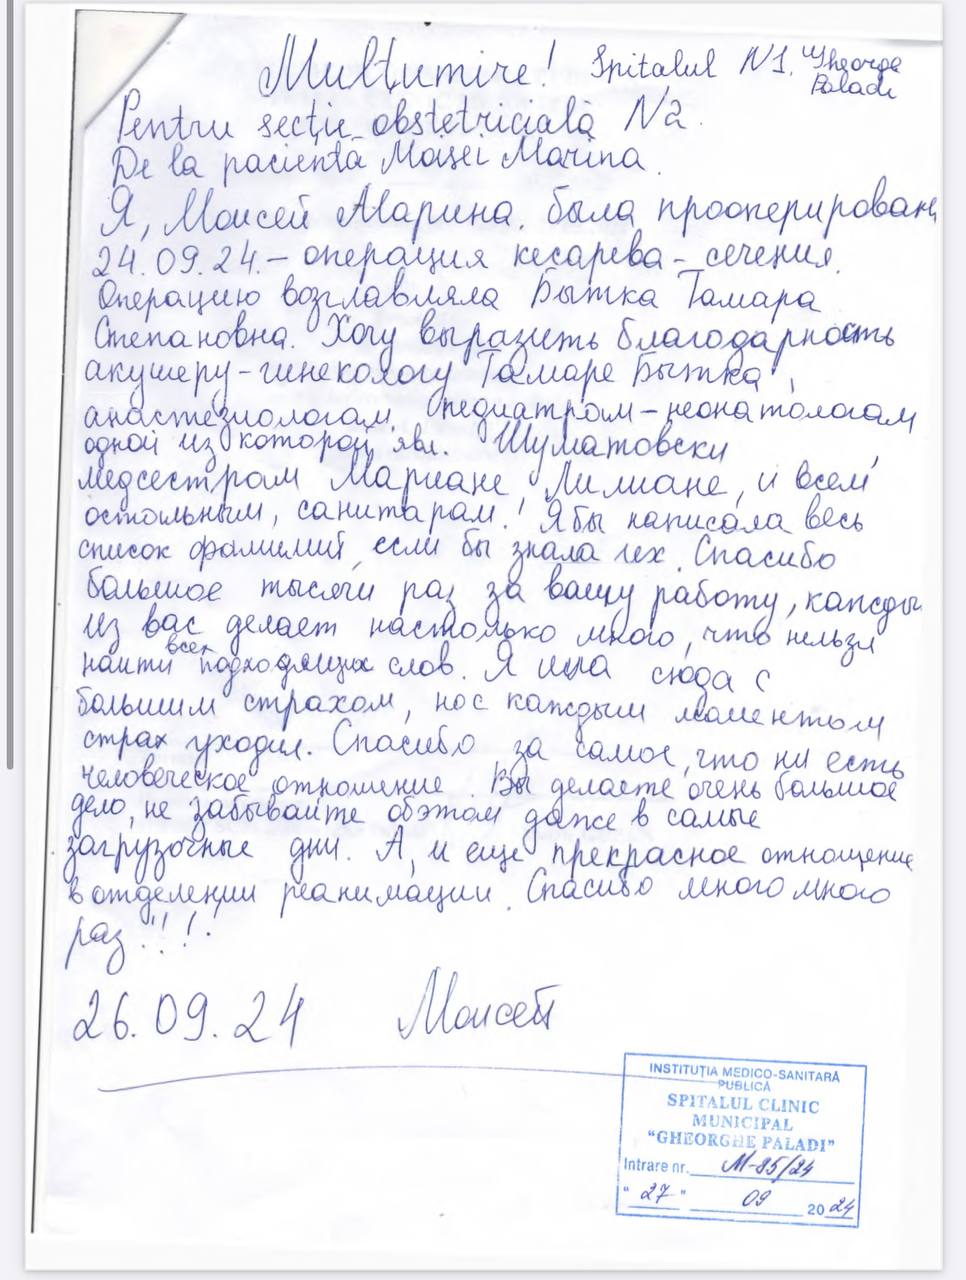 Mulțumire! Spitalul N1. "Gheorge
Paladi
Pentru secție obstetricială N2.
De la pacienta Moisei Marina.
Я, Моисей Марина. была прооперирована
24.09.24. – операция кесарева – сечения.
Операцию возглавляла Бытка Тамара
Степановна. Хочу выразить благодарность
акушеру – гинекологу Тамаре Бытка,
анастезиологам, педиатром – неонатологам
одной из которой явл. Шуматовски
медсестрам Мариане, Лилиане, и всем
остальным, санитарам! Я бы написала весь
список фамилий, если бы знала их. Спасибо
большое тысячи раз за вашу работу, каждый
из вас делает настолько много, что нельзя
найти всех подходящих слов. Я шла сюда с
большим страхом, но с каждым моментом
страх уходил. Спасибо за самое, что ни есть
человеческое отношение. Вы делаете очень большое
дело, не забывайте об этом даже в самые
загрузочные дни. А, и еще прекрасное отношение
в отделении реанимации. Спасибо много много
раз!!!!
26.09.24 Моисей
INSTITUȚIA MEDICO-SANITARĂ
PUBLICĂ
SPITALUL CLINIC
MUNICIPAL
"GHEORGHE PALADI"
Intrare nr. M-85/24
"27" 09 2024